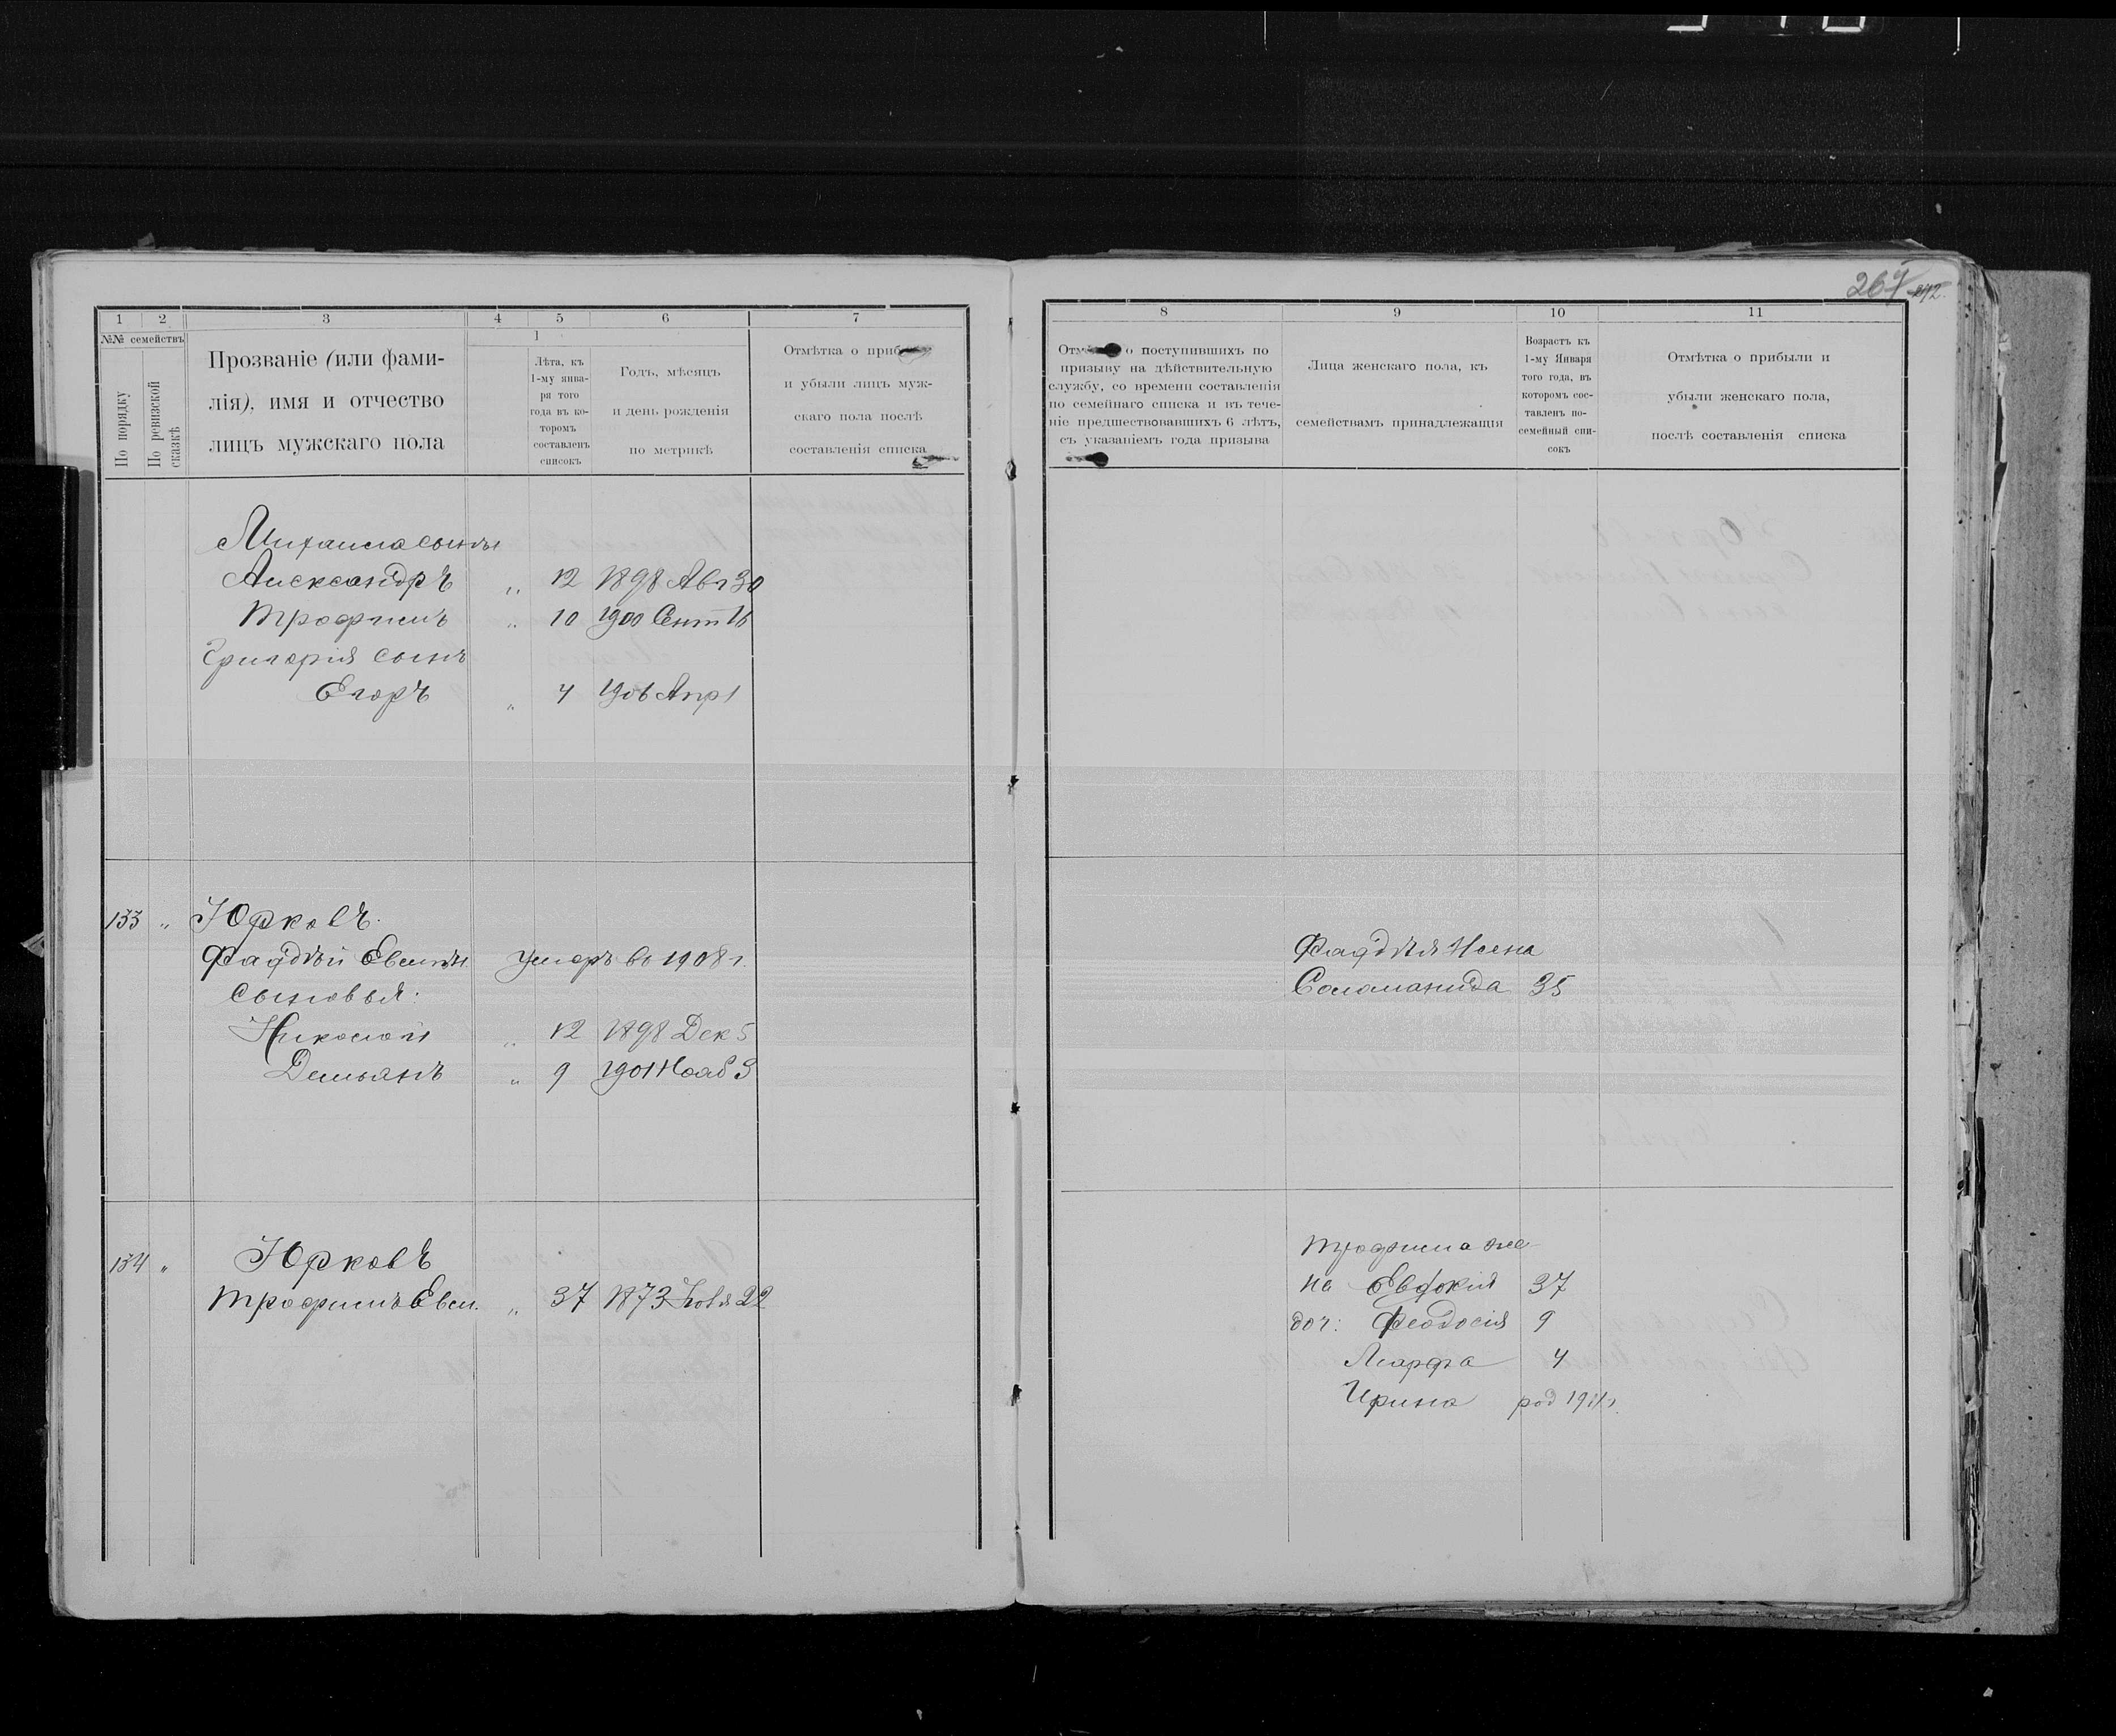 1 2 3 4 5 6 7
№№ семействъ
По порядку
По ревизской сказкѣ
Прозваніе (или фами-
лія), имя и отчество
лицъ мужскаго пола
1
Лѣта, къ
1-му янва-
ря того
года въ ко-
торомъ
составленъ
списокъ
Годъ, мѣсяцъ
и день рожденія
по метрикѣ
Отмѣтка о
и убыли лицъ муж-
скаго пола послѣ
составленія списка
Михаила сыновья
Александръ „ 12 1898 Авг 30
Трофимъ „ 10 1900 Сент 16
Григорія сынъ
Егоръ „ 4 1906 Апр 1
133 „ Юрковъ.
Фаддѣй умеръ во 1908 г.
сыновья:
Николай „ 12 1898 Дек 5
Демьянъ „ 9 1901 Нояб 3
134 „ Юрковъ
Трофимъ „ 37 1873 22
264
8 9 10 11
о поступившихъ по
призыву на дѣйствительную
службу, со времени составленія
по семейнаго списка и въ тече-
ніе предшествовавшихъ 6 лѣтъ,
съ указаніемъ года призыва
Лица женскаго пола, къ
семействамъ принадлежащія
Возрастъ къ
1-му Января
того года, въ
которомъ сос-
тавленъ по-
семейный спи-
сокъ
Отмѣтка о прибыли и
убыли женскаго пола,
послѣ составленія списка
Фаддѣя жена
Соломанида 35
Трофима же-
на Евдокія 37
доч: Феодосія 9
Марфа 4
Ирина род 1911 г.